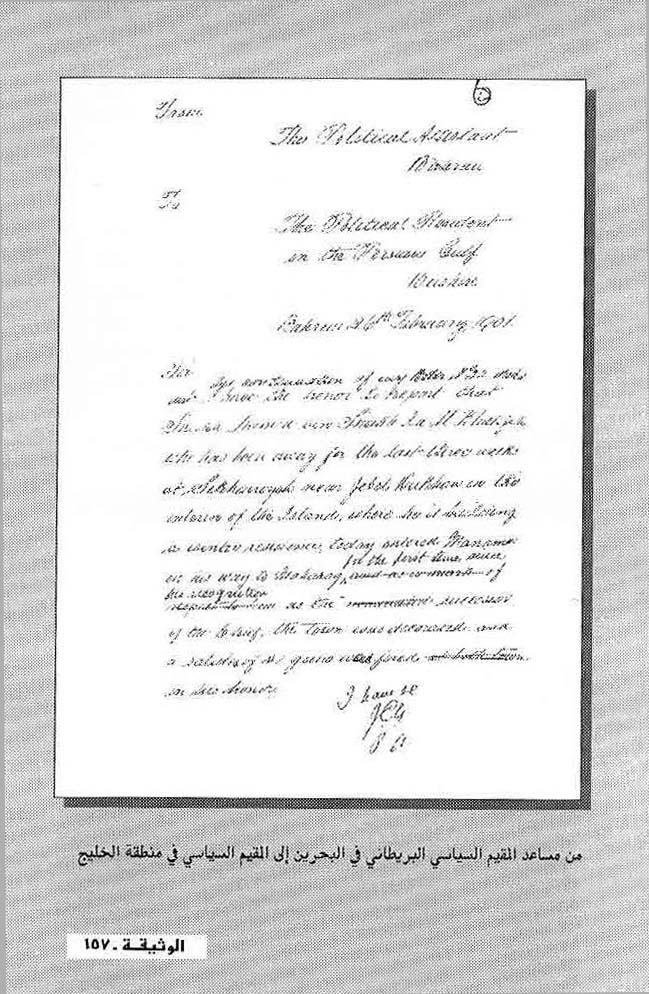 6
From
The Political Assistant
Bahrein
To
The Political Resident
in the Persian Gulf
Bushire
Bahrein 26th February, 1901.
Sir
In continuation of my
I have the honor to report that
Sheikh Hamad bin Sheikh Isa
who has been away for the last three weeks
at near Jebel in the
interior of the Island, where he is building
a country residence, today entered Manama
on his way to Moharag, for the first time since
and as a mark of
his recognition
as the successor
of the Chief. The town was decorated and
a salute of guns was fired
in his honor.
I have &c
J C G
P A
من مساعد المقيم السياسي البريطاني في البحرين إلى المقيم السياسي في منطقة الخليج
الوثيقة - ١٥٧